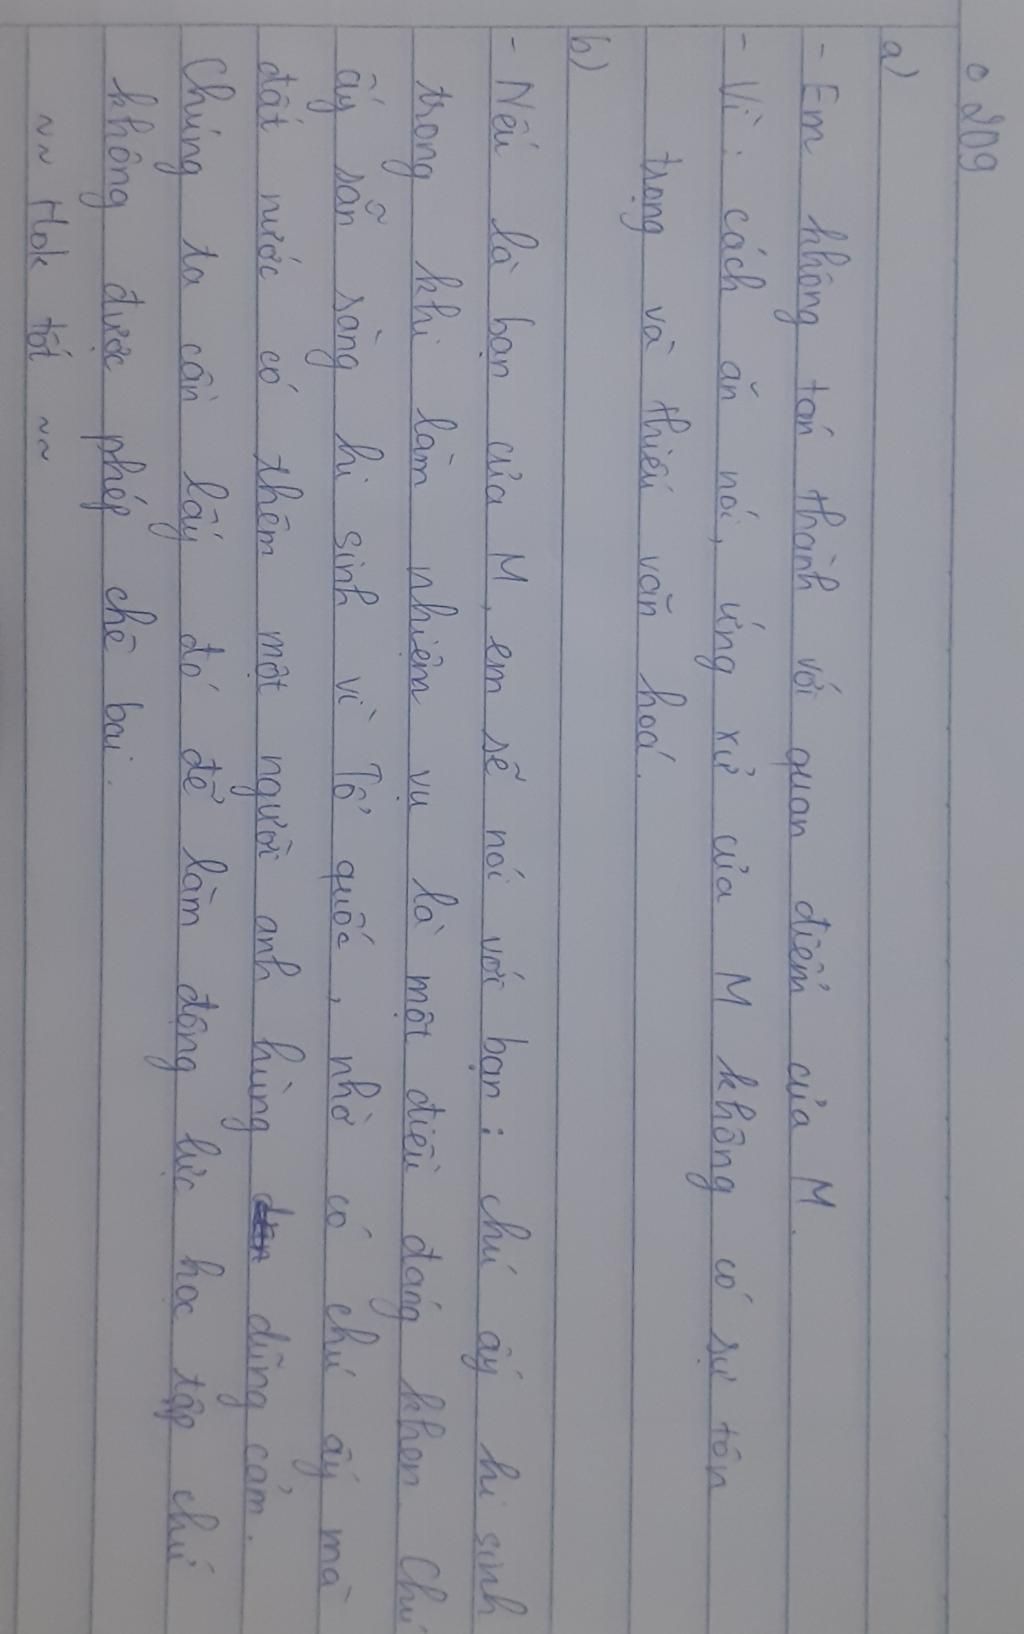 c 209
a)
- Em không tán thành với quan điểm của M.
- Vì: cách ăn nói, ứng xử của M không có sự tôn
trọng và thiếu văn hoá.
b)
- Nếu là bạn của M, em sẽ nói với bạn: chú ấy hi sinh
trong khi làm nhiệm vụ là một điều đáng khen. Chú
ấy sẵn sàng hi sinh vì Tổ quốc, nhờ có chú ấy mà
đất nước có thêm một người anh hùng dũng cảm.
Chúng ta cần lấy đó để làm động lực học tập chứ
không được phép chê bai.
~~ Hok tốt ~~